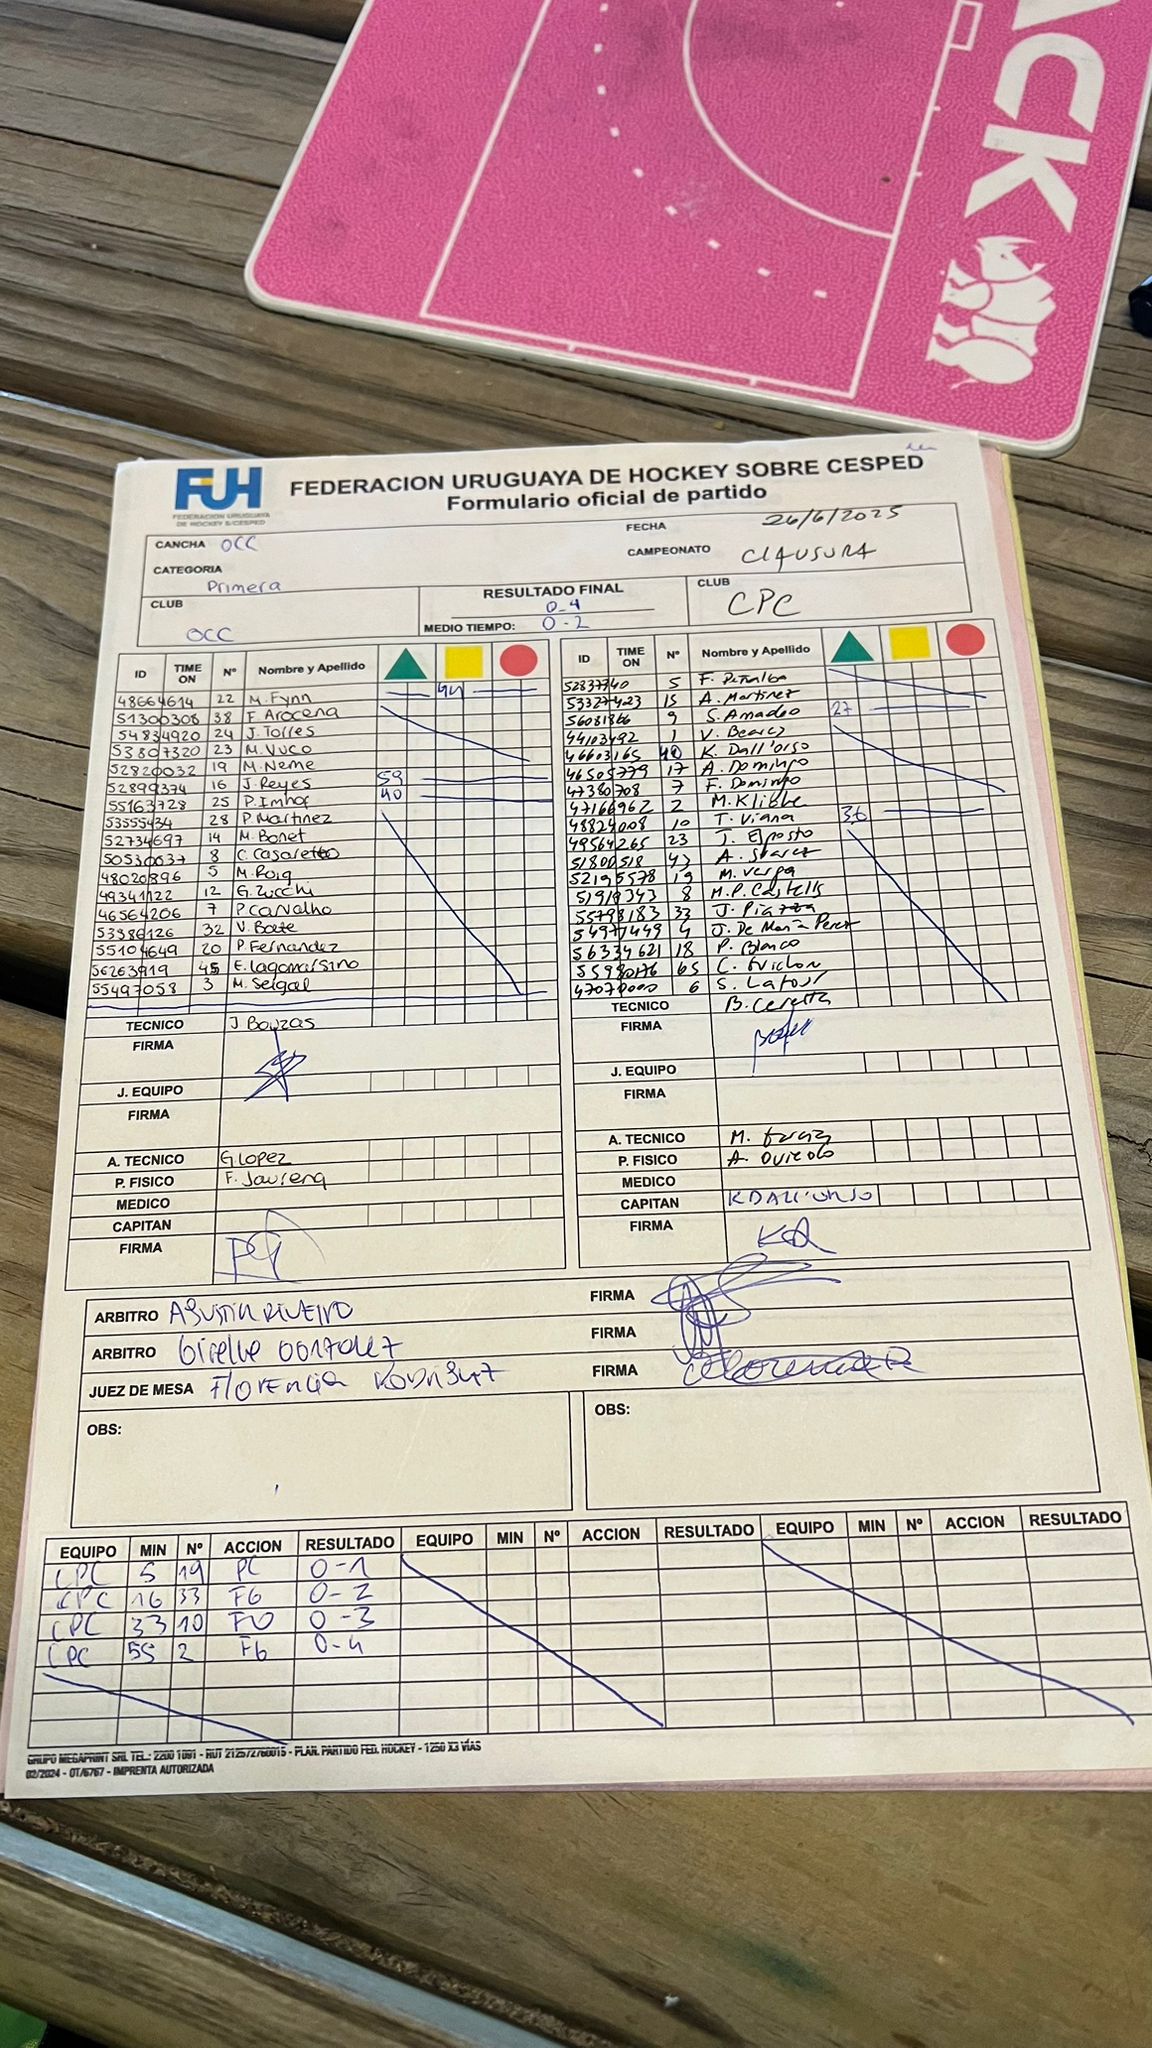 ACK
FUH
FEDERACION URUGUAYA
DE HOCKEY S/CESPED
FEDERACION URUGUAYA DE HOCKEY SOBRE CESPED
Formulario oficial de partido
CANCHA OCC
FECHA 26/6/2025
CATEGORIA Primera
CAMPEONATO CLAUSURA
CLUB OCC
RESULTADO FINAL 0-4
MEDIO TIEMPO: 0-2
CLUB CPC
ID TIME ON Nº Nombre y Apellido
48664614 22 M. Fynn
51300308 38 F. Arocena
54834920 24 J. Torres
53807320 23 M. Vuco
52820032 19 M. Neme
52899374 16 J. Reyes 59
55163728 25 P. Imhof 40
53555434 28 P. Martinez
52734697 14 M. Bonet
50530037 8 C. Casaretto
48020896 5 M. Roig
49341122 12 G. Zucchi
46564206 7 P. Carvalho
53386126 32 V. Baste
55104649 20 P. Fernandez
56263919 45 E. Lagomarsino
55497058 3 M. Seigal
TECNICO J Bouzas
FIRMA
J. EQUIPO
FIRMA
A. TECNICO G. Lopez
P. FISICO F. Jaurena
MEDICO
CAPITAN
FIRMA
ID TIME ON Nº Nombre y Apellido
52837740 5 F. Peñalba
53327423 15 A. Martinez
56081866 9 S. Amadeo 27
44103492 1 V.
46603165 K. Dall'orso
46505779 17 A. Domingo
47380708 7 F. Domingo
47166962 2 M.
48824008 10 T. Viana 36
49564265 23 T. Esposto
51800518 43 A. Suarez
52195578 19 M. Verga
51919343 8 M.P. Castells
55798183 33 J. Piazza
54977449 4 J. De María Perez
56334621 18 P. Blanco
55980176 65 C. Guichon
47070000 6 S. Latour
TECNICO B. Ceretta
FIRMA
J. EQUIPO
FIRMA
A. TECNICO M. Garcia
P. FISICO A. Oviedo
MEDICO
CAPITAN K DALL'ORSO
FIRMA
ARBITRO AGUSTIN RIVEIRO FIRMA
ARBITRO Giselle GONZALEZ FIRMA
JUEZ DE MESA FLORENCIA RODRIGUEZ FIRMA
OBS:
OBS:
EQUIPO MIN Nº ACCION RESULTADO EQUIPO MIN Nº ACCION RESULTADO EQUIPO MIN Nº ACCION RESULTADO
CPC 5 19 PC 0-1
CPC 16 33 FG 0-2
CPC 33 10 FG 0-3
CPC 55 2 FG 0-4
GRUPO MEGAPRINT SRL TEL.: 2200 1091 - RUT 212572760015 - PLAN. PARTIDO FED. HOCKEY - 1250 X3 VÍAS
02/2024 - OT/6767 - IMPRENTA AUTORIZADA